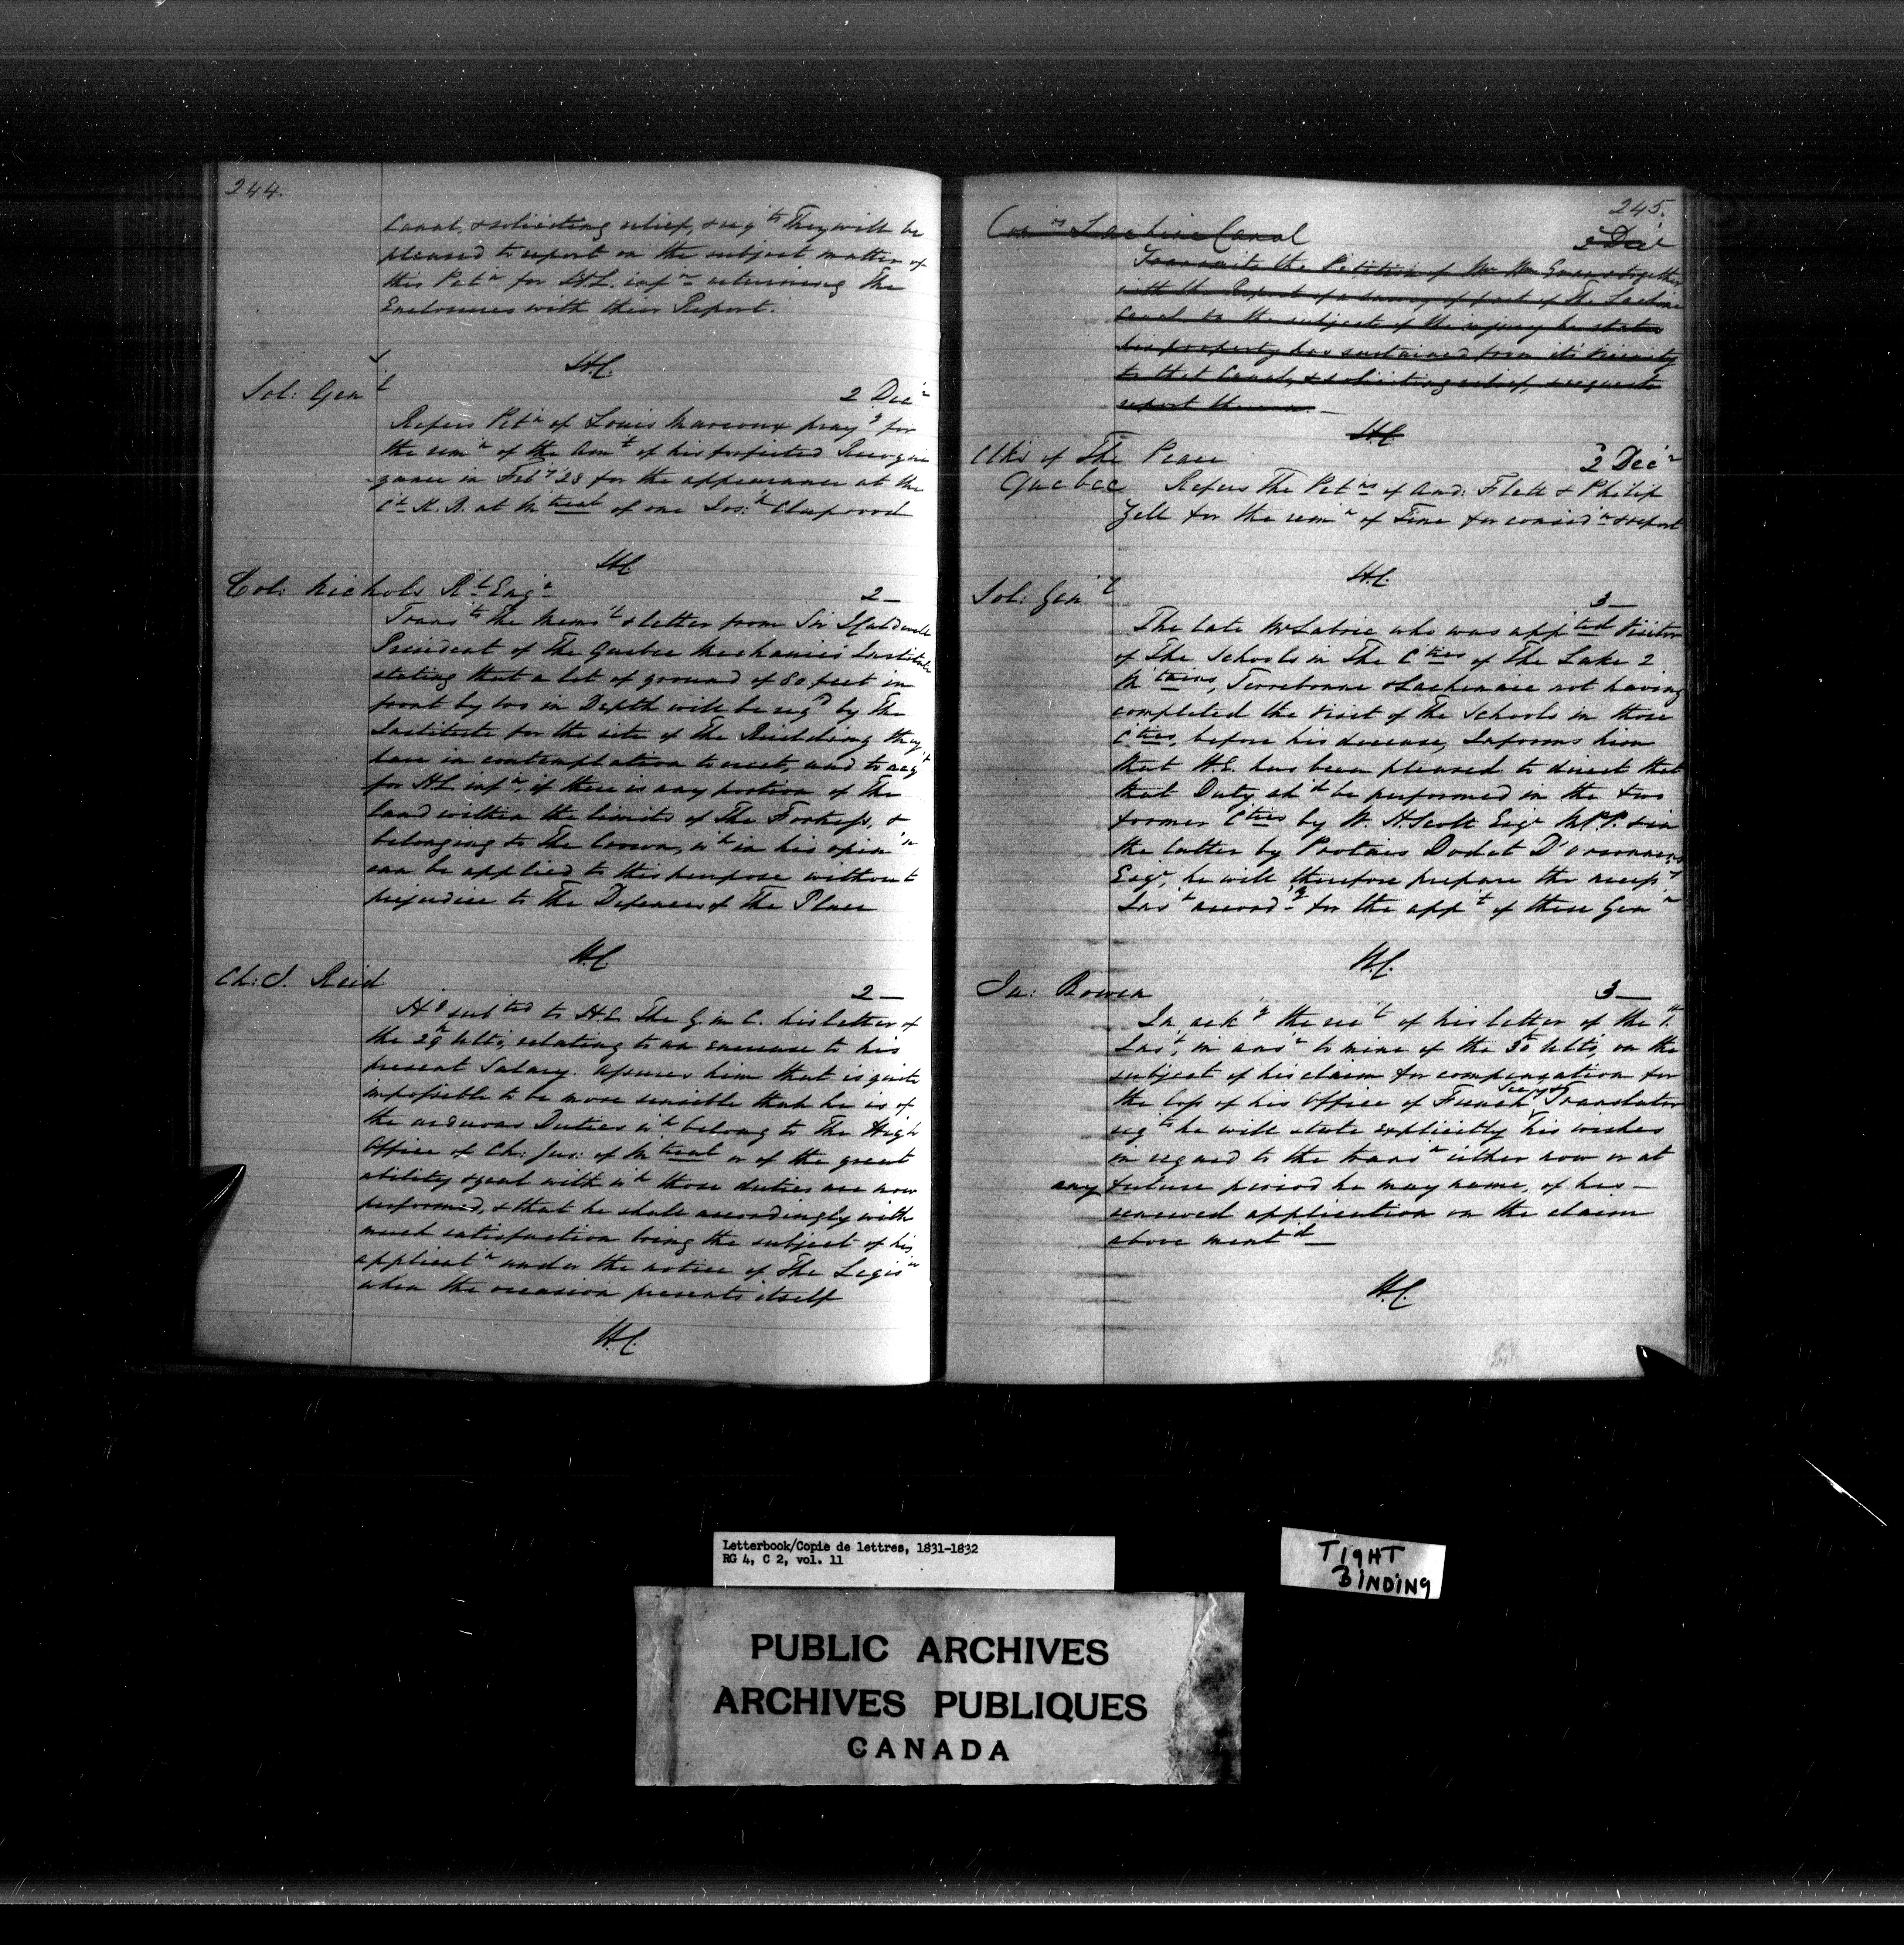 244.
Canal, & soliciting relief, & req.ts They will be
pleased to report on the subject matter of
this Pet.n for H.E. inf.n returning The
Enclosures with their Report.
H.C.
Sol: Gen.l 2 Dec.r
Refers Pet.n of Louis Marcoux pray.g for
the rem.n of the Am.t of his forfeited Recogni
-zance in Feb.y 28 for the appearance at the
C.t K.B. at M.treal of one Jos:h Clapwood
H.C.
Col: Nichols R.l Eng.r 2 —
Trans.ts The Mem.l & letter from Sir J Caldwell
President of The Quebec Mechanics Institute
stating that a lot of ground of 80 feet in
front by 100 in Depth will be req.d by The
Institute for the site of The Building they
have in contemplation to erect, and to req.t
for H.E. inf.n, if there is any portion of The
land within the limits of The Fortress, &
belonging to The Crown, w.h in his opin.n
can be applied to this purpose without
prejudice to The Defences of The Place
H.C.
Ch: J. Reid 2 —
H.g sub.ted to H.E. The G. in C. his letter of
the 29.h Ulto, relating to an encrease to his
present Salary. Assures him that is quite
impossible to be more sensible than he is of
the arduous Duties w.h belong to The High
Office of Ch: Jus: of M.treal or of the great
ability & zeal with w.h those duties are now
performed, & that he shall accordingly with
much satisfaction bring the subject of his
applicat.n under the notice of The Legis.re
when the occasion presents itself
H.C.
245.
Com.rs Lachine Canal 2 Dec.r
Transmits the Petition of Mr Wm Evans together
with the Report of a survey of part of The Lachine
Canal on the subject of the injury he states
his property has sustained from its vicinity
to that Canal, & soliciting relief, & requests
report thereon. —
H.C.
Clks of The Peace 2 Dec.r
Quebec Refers The Pet.ns of And: Flett & Philip
Zell for the rem.n of Fine for consid.n & report
H.C.
Sol: Gen.l 3 —
The late Mr Labrie who was app.ted Visitor
of The Schools in The C.ties of The Lake 2
M.tains, Terrebonne & Lachenaie not having
completed the visit of The Schools in those
C.ties, before his decease, Informs him
that H.E. has been pleased to direct that
that Duty sh.d be performed in the two
former C.ties by W. H. Scott Esq.r M.P.P. & in
the latter by Protais Dodet D'Orsonnens
Esq.r, he will therefore prepare the necess.y
Ins.t accord.g for the app.t of these Gen.n
H.C.
Ja: Bowen 3 —
In ack.g the rec.t of his letter of the 1.st
Ins.t, in ans.r to mine of the 30.h Ulto, on the
subject of his claim for compensation for
the loss of his Office of French Sec.y & Translator
req.ts he will state explicitly his wishes
in regard to the trans.n either now or at
any future period he may name, of his —
renewed application on the claim
above ment.d —
H.C.
Letterbook/Copie de lettres, 1831-1832
RG 4, C 2, vol. 11
TIGHT
BINDING
PUBLIC ARCHIVES
ARCHIVES PUBLIQUES
CANADA